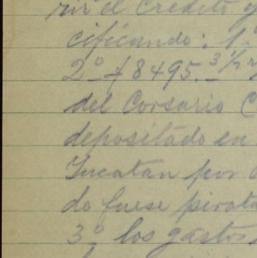 el credito y
cificando: 1º
2º $8495. 3½ r
del Corsario C
depositado en
Yucatan por
do fuese pirata
3º los gastos